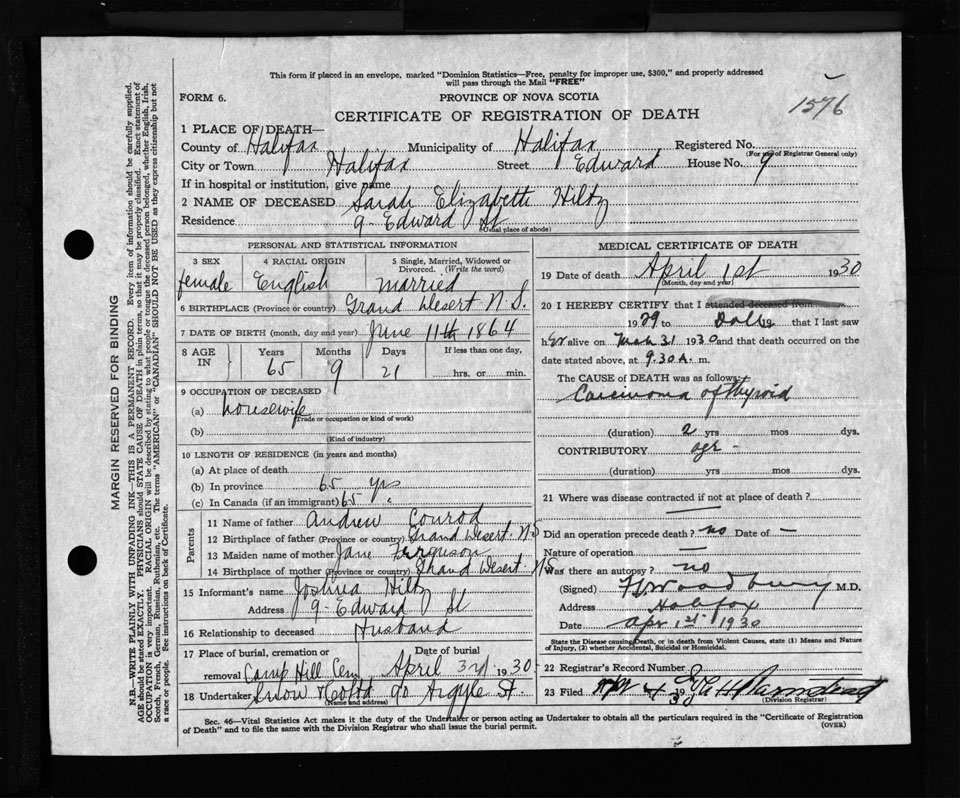 This form if placed in an envelope, marked "Dominion Statistics—Free, penalty for improper use, $300," and properly addressed
will pass through the Mail "FREE"
FORM 6.
PROVINCE OF NOVA SCOTIA
1576
CERTIFICATE OF REGISTRATION OF DEATH
1 PLACE OF DEATH—
County of Halifax Municipality of Halifax Registered No.
(For use of Registrar General only)
City or Town Halifax Street Edward House No. 9
If in hospital or institution, give name
2 NAME OF DECEASED Sarah Elizabeth Hiltz
Residence 9- Edward St
(Usual place of abode)
PERSONAL AND STATISTICAL INFORMATION
3 SEX 4 RACIAL ORIGIN 5 Single, Married, Widowed or
Divorced. (Write the word)
female English married
6 BIRTHPLACE (Province or country) Grand Desert N.S.
7 DATE OF BIRTH (month, day and year) June 11th 1864
8 AGE IN Years Months Days If less than one day,
65 9 21 hrs. or min.
9 OCCUPATION OF DECEASED
(a) housewife
(Trade or occupation or kind of work)
(b)
(Kind of industry)
10 LENGTH OF RESIDENCE (in years and months)
(a) At place of death
(b) In province 65 yrs
(c) In Canada (if an immigrant) 65 "
Parents
11 Name of father Andrew Conrod
12 Birthplace of father (Province or country) Grand Desert. N.S
13 Maiden name of mother Jane Ferguson
14 Birthplace of mother (Province or country) Grand Desert N.S.
15 Informant's name Joshua Hiltz
Address 9- Edward St
16 Relationship to deceased Husband
17 Place of burial, cremation or removal Date of burial
Camp Hill Cem April 3rd 1930
18 Undertaker Snow & Co Ltd 90 Argyle St.
(Name and address)
MEDICAL CERTIFICATE OF DEATH
19 Date of death April 1st 1930
(Month, day and year)
20 I HEREBY CERTIFY that I attended deceased from
1929 to 19 that I last saw
her alive on Mch 31 1930 and that death occurred on the
date stated above, at 9.30 A. m.
The CAUSE OF DEATH was as follows:
Carcinoma of thyroid
(duration) 2 yrs mos dys.
CONTRIBUTORY age -
(duration) yrs mos dys.
21 Where was disease contracted if not at place of death?
Did an operation precede death? no Date of —
Nature of operation —
Was there an autopsy? no
(Signed) Woodbury M.D.
Address Halifax
Date Apr 1st 1930
State the Disease causing Death, or in death from Violent Causes, state (1) Means and Nature
of Injury, (2) whether Accidental, Suicidal or Homicidal.
22 Registrar's Record Number
23 Filed Apr 4 19
(Division Registrar)
Sec. 46—Vital Statistics Act makes it the duty of the Undertaker or person acting as Undertaker to obtain all the particulars required in the "Certificate of Registration
of Death" and to file the same with the Division Registrar who shall issue the burial permit.
(OVER)
MARGIN RESERVED FOR BINDING
N.B.—WRITE PLAINLY WITH UNFADING INK—THIS IS A PERMANENT RECORD. Every item of information should be carefully supplied.
AGE should be stated EXACTLY. PHYSICIANS should STATE CAUSE OF DEATH in plain terms, so that it may be properly classified. Exact statement of
OCCUPATION is very important. RACIAL ORIGIN will be described by stating to what people or tongue the deceased person belonged, whether English, Irish,
Scotch, French, German, Russian, Ruthenian, etc. The terms "AMERICAN" or "CANADIAN" SHOULD NOT BE USED as they express citizenship but not
a race or people. See instructions on back of Certificate.